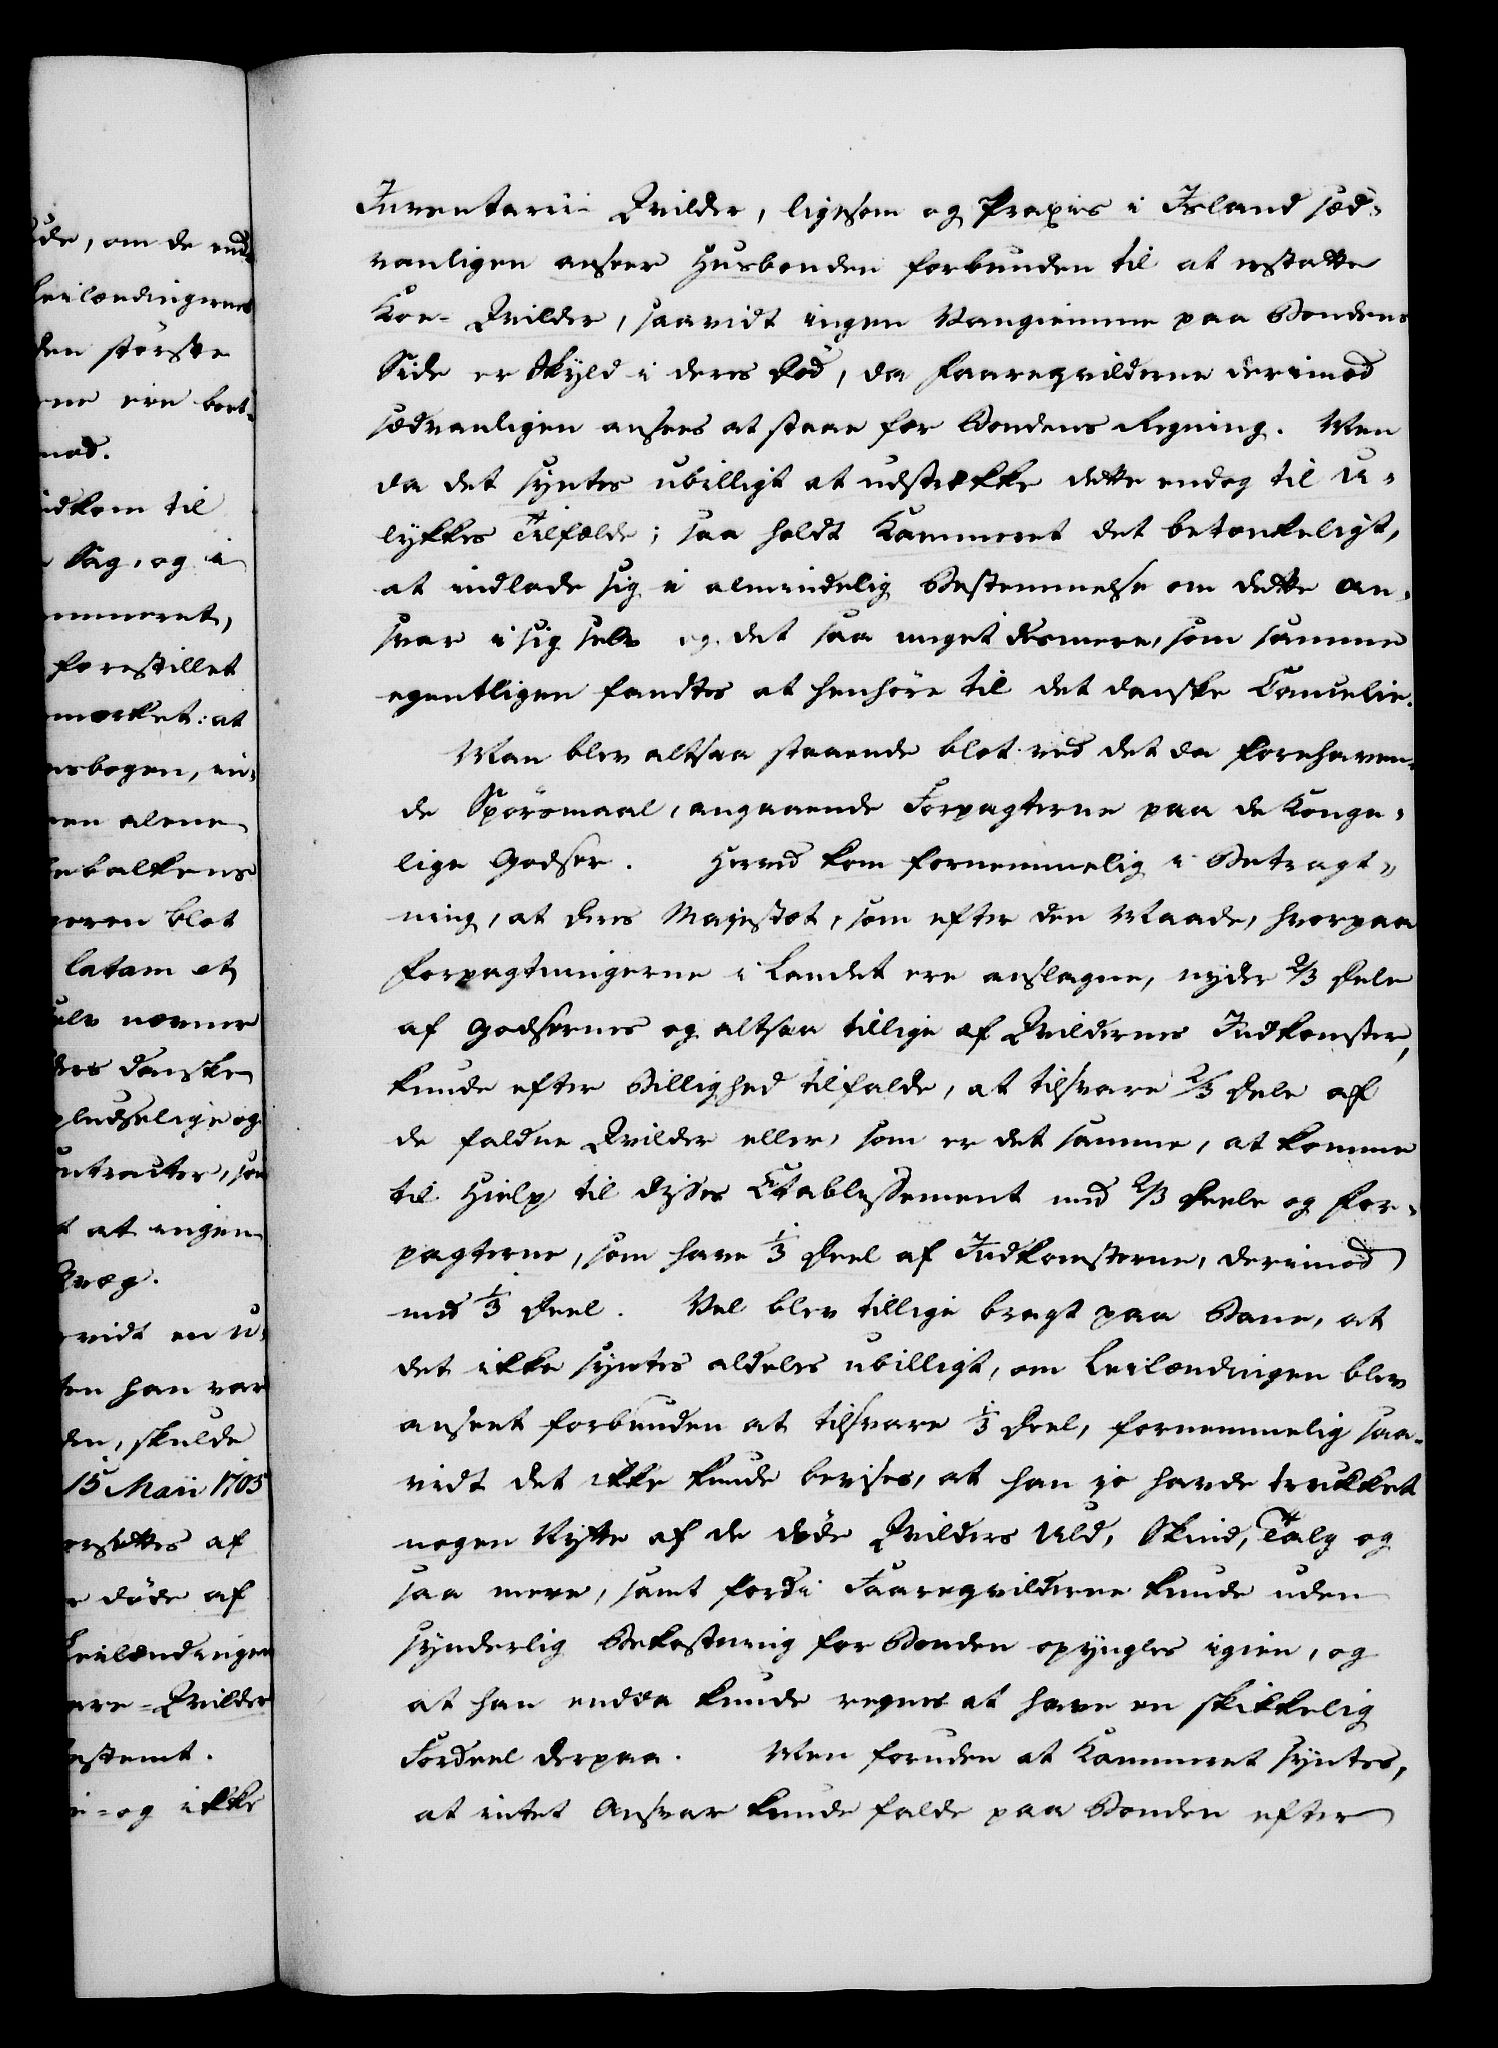 ude, om de end¬
Leilændingernes
den störste
ne ere bort¬
mod.
idkom til
Sag, og i
mmeret,
forestillet
mærket: at
nsbogen, in¬
en alene
ebalkens
geren blot
latam et
elv nævner
ders danske
pludselige og
ontracter, som
t at ingen
Qvæg.
vidt en u¬
ten han var
den, skulde
15 Maii 1705
ersættes af
e döde af
Leilændingen
are=Qvilder
estemt.
i=og ikke
Inventarii Qvilder, ligesom og Praxis i Island sæd¬
vanligen anseer Husbonden forbunden til at erstatte
Koe=Qvilder, saavidt ingen Vangiemme paa Bondens
Side er Skyld i deres Död, da Faareqvilderne derimod
sædvanligen ansees at staae for Bondens Regning. Men
da det syntes ubilligt at udstrække dette endog til U¬
lykkes Tilfælde; saa holdt Kammeret det betænkeligt,
at indlade sig i almindelig Bestemmelse om dette An¬
svar i sig selv og det saa meget desmere, som samme
egentligen fandtes at henhöre til det danske Cancelie.
Man blev altsaa staaende blot ved det da forehaven¬
de Spörsmaal, angaaende Forpagterne paa de Konge¬
lige Godser. Herved kom fornemmelig i Betragt¬
ning, at Deres Majestæt, som efter den Maade, hvorpaa
Forpagtningerne i Landet ere anslagne, nyder 2/3 Dele
af Godsernes og altsaa tillige af Qvildernes Indkomster,
kunde efter Billighed tilfalde, at tilsvare 2/3 Dele af
de faldne Qvilder eller, som er det samme, at komme
til Hielp til disses Etablissement med 2/3 Deele og For¬
pagterne, som have 1/3 Deel af Indkomsterne, derimod
med 1/3 Deel. Vel blev tillige bragt paa Bane, at
det ikke syntes aldeles ubilligt, om Leilændingen blev
anseet forbunden at tilsvare 1/3 Deel, fornemmelig saa¬
vidt det ikke kunde bevises, at han jo havde trukket
nogen Nytte af de döde Qvilders Uld, Skind, Talg og
saa mere, samt fordi Faareqvilderne kunde uden
synderlig Bekostning for Bonden opyngles igien, og
at han endda kunde regnes at have en skikkelig
Fordeel derpaa. Men foruden at Kammeret syntes,
at intet Ansvar kunde falde paa Bonden efter